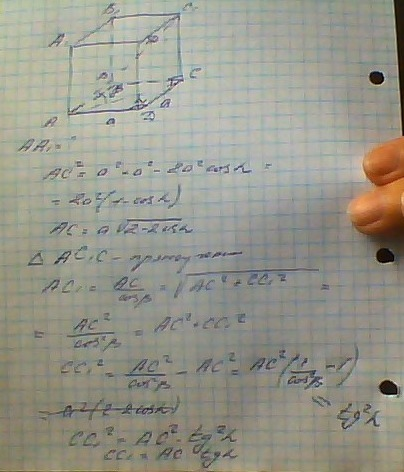 B₁ C₁
A₁ D₁
B C
A a D a
AA₁ =
AC² = a² + a² - 2a² cos α =
= 2a² (1 - cos α)
AC = a √2 - 2cos α
Δ AC₁C -
AC₁ = AC / cos β = √AC² + CC₁² =
= AC² / cos² β = AC² + CC₁²
CC₁² = AC² / cos² β - AC² = AC² (1 / cos β - 1)
= a² (2 - 2cos α) = tg² α
CC₁² = AC² · tg² α
CC₁ = AC · tg α